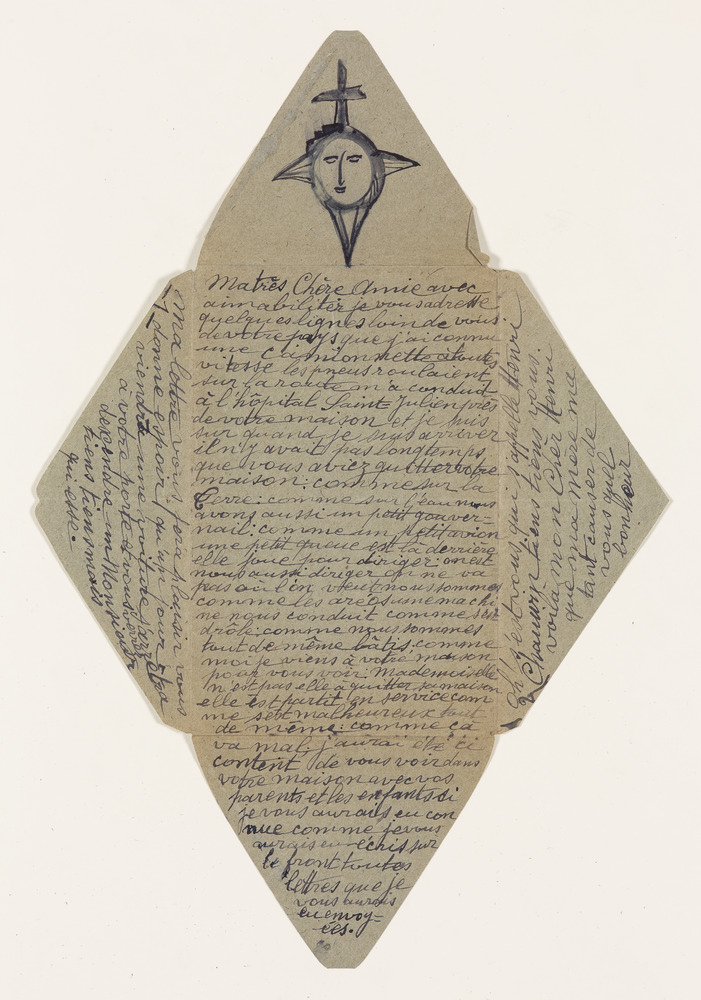 Ma très Chère Amie avec
aimabiliter je vous adresse
quelques lignes loin de vous.
de votre pays que j'ai connu
une Camionnette a toute
vitesse les pneus roulaient
sur la route m'a conduit
à l'hôpital Saint-Julien près
de votre maison et je suis
sur quand je suis arriver
il n'y avait pas longtemps
que vous aviez quitter votre
maison: comme sur la
Terre: comme sur l'eau nous
avons aussi un petit gouver-
nail: comme un petit avion
une petit queue est là derrière
elle joue pour diriger: on est
nous aussi diriger on ne va
pas où l'on veut nous sommes
comme les
ne nous conduit comme c'est
drôle: comme nous sommes
tout de même bâtis: comme
moi je viens à votre maison
pour vous voir Mademoiselle
n'est pas elle à quitter sa maison
elle est partit en service com
me c'est malheureux tout
de même: comme ça
va mal j'aurai été si
content de vous voir dans
votre maison avec vos
parents et les enfants si
je vous aurais eu con
nue comme je vous
aurais eu écris sur
le front toutes
lettres que je
vous aurais
eu envoy-
ées.
ma lettre vous fera plaisir vous
donne espoir qu'un jour
viendra une voiture
a votre porte et vous verrez
descendre un Monsieur
tiens tiens mais
qui est-ce.
Oh! c'est vous qui s'appelle Henri
Chauvin tiens tiens vous
voilà mon Cher Henri
que ma mère m'a
tant causer de
vous quel
bonheur